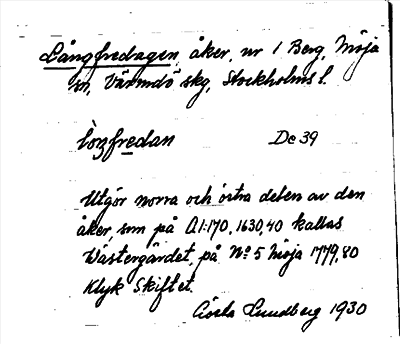 Långfredagen, åker, nr 1 Berg, Möja
sn, Värmdö skg, Stockholms l.
lòŋfredan De 39
Utgör norra och östra delen av den
åker, som på A1:170, 1630,40 kallas
Wästergärdet, på No 5 Möja 1779,80
Klyk Skiftet.
Gösta Lundberg 1930